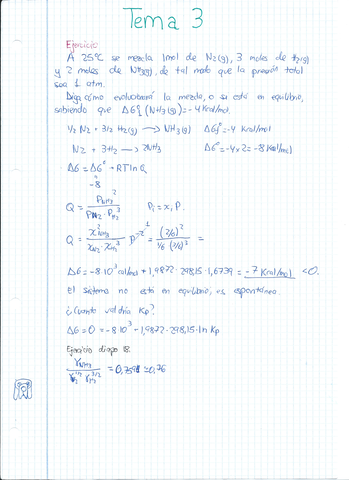 Tema 3
Ejercicio
A 25°C se mezcla 1mol de N2(g), 3 moles de H2(g)
y 2 moles de NH3(g), de tal modo que la presión total
sea 1 atm.
Diga cómo evolucionará la mezcla, o si está en equilibrio,
sabiendo que ΔG°f (NH3(g)) = -4 Kcal/mol
1/2 N2 + 3/2 H2(g) → NH3(g) ΔGf° = -4 Kcal/mol
N2 + 3H2 → 2NH3 ΔG° = -4×2 = -8 Kcal/mol
ΔG = ΔG° + RTln Q
-8
Q = P NH3² / P N2 · P H2³ Pi = xi P
Q = x² NH3 / x N2 · x H2³ P^-2 = (2/6)² / 1/6 (3/6)³ =
ΔG = -8·10³ cal/mol + 1,9872 · 298,15 · 1,6739 = -7 Kcal/mol < 0.
El sistema no está en equilibrio, es espontáneo
¿Cuánto valdría Kp?
ΔG = 0 = -8·10³ - 1,9872 · 298,15 · ln Kp
Ejercicio diapo 18.
γ NH3 / γ N2^1/2 γ H2^3/2 = 0,7598 ≃ 0,76